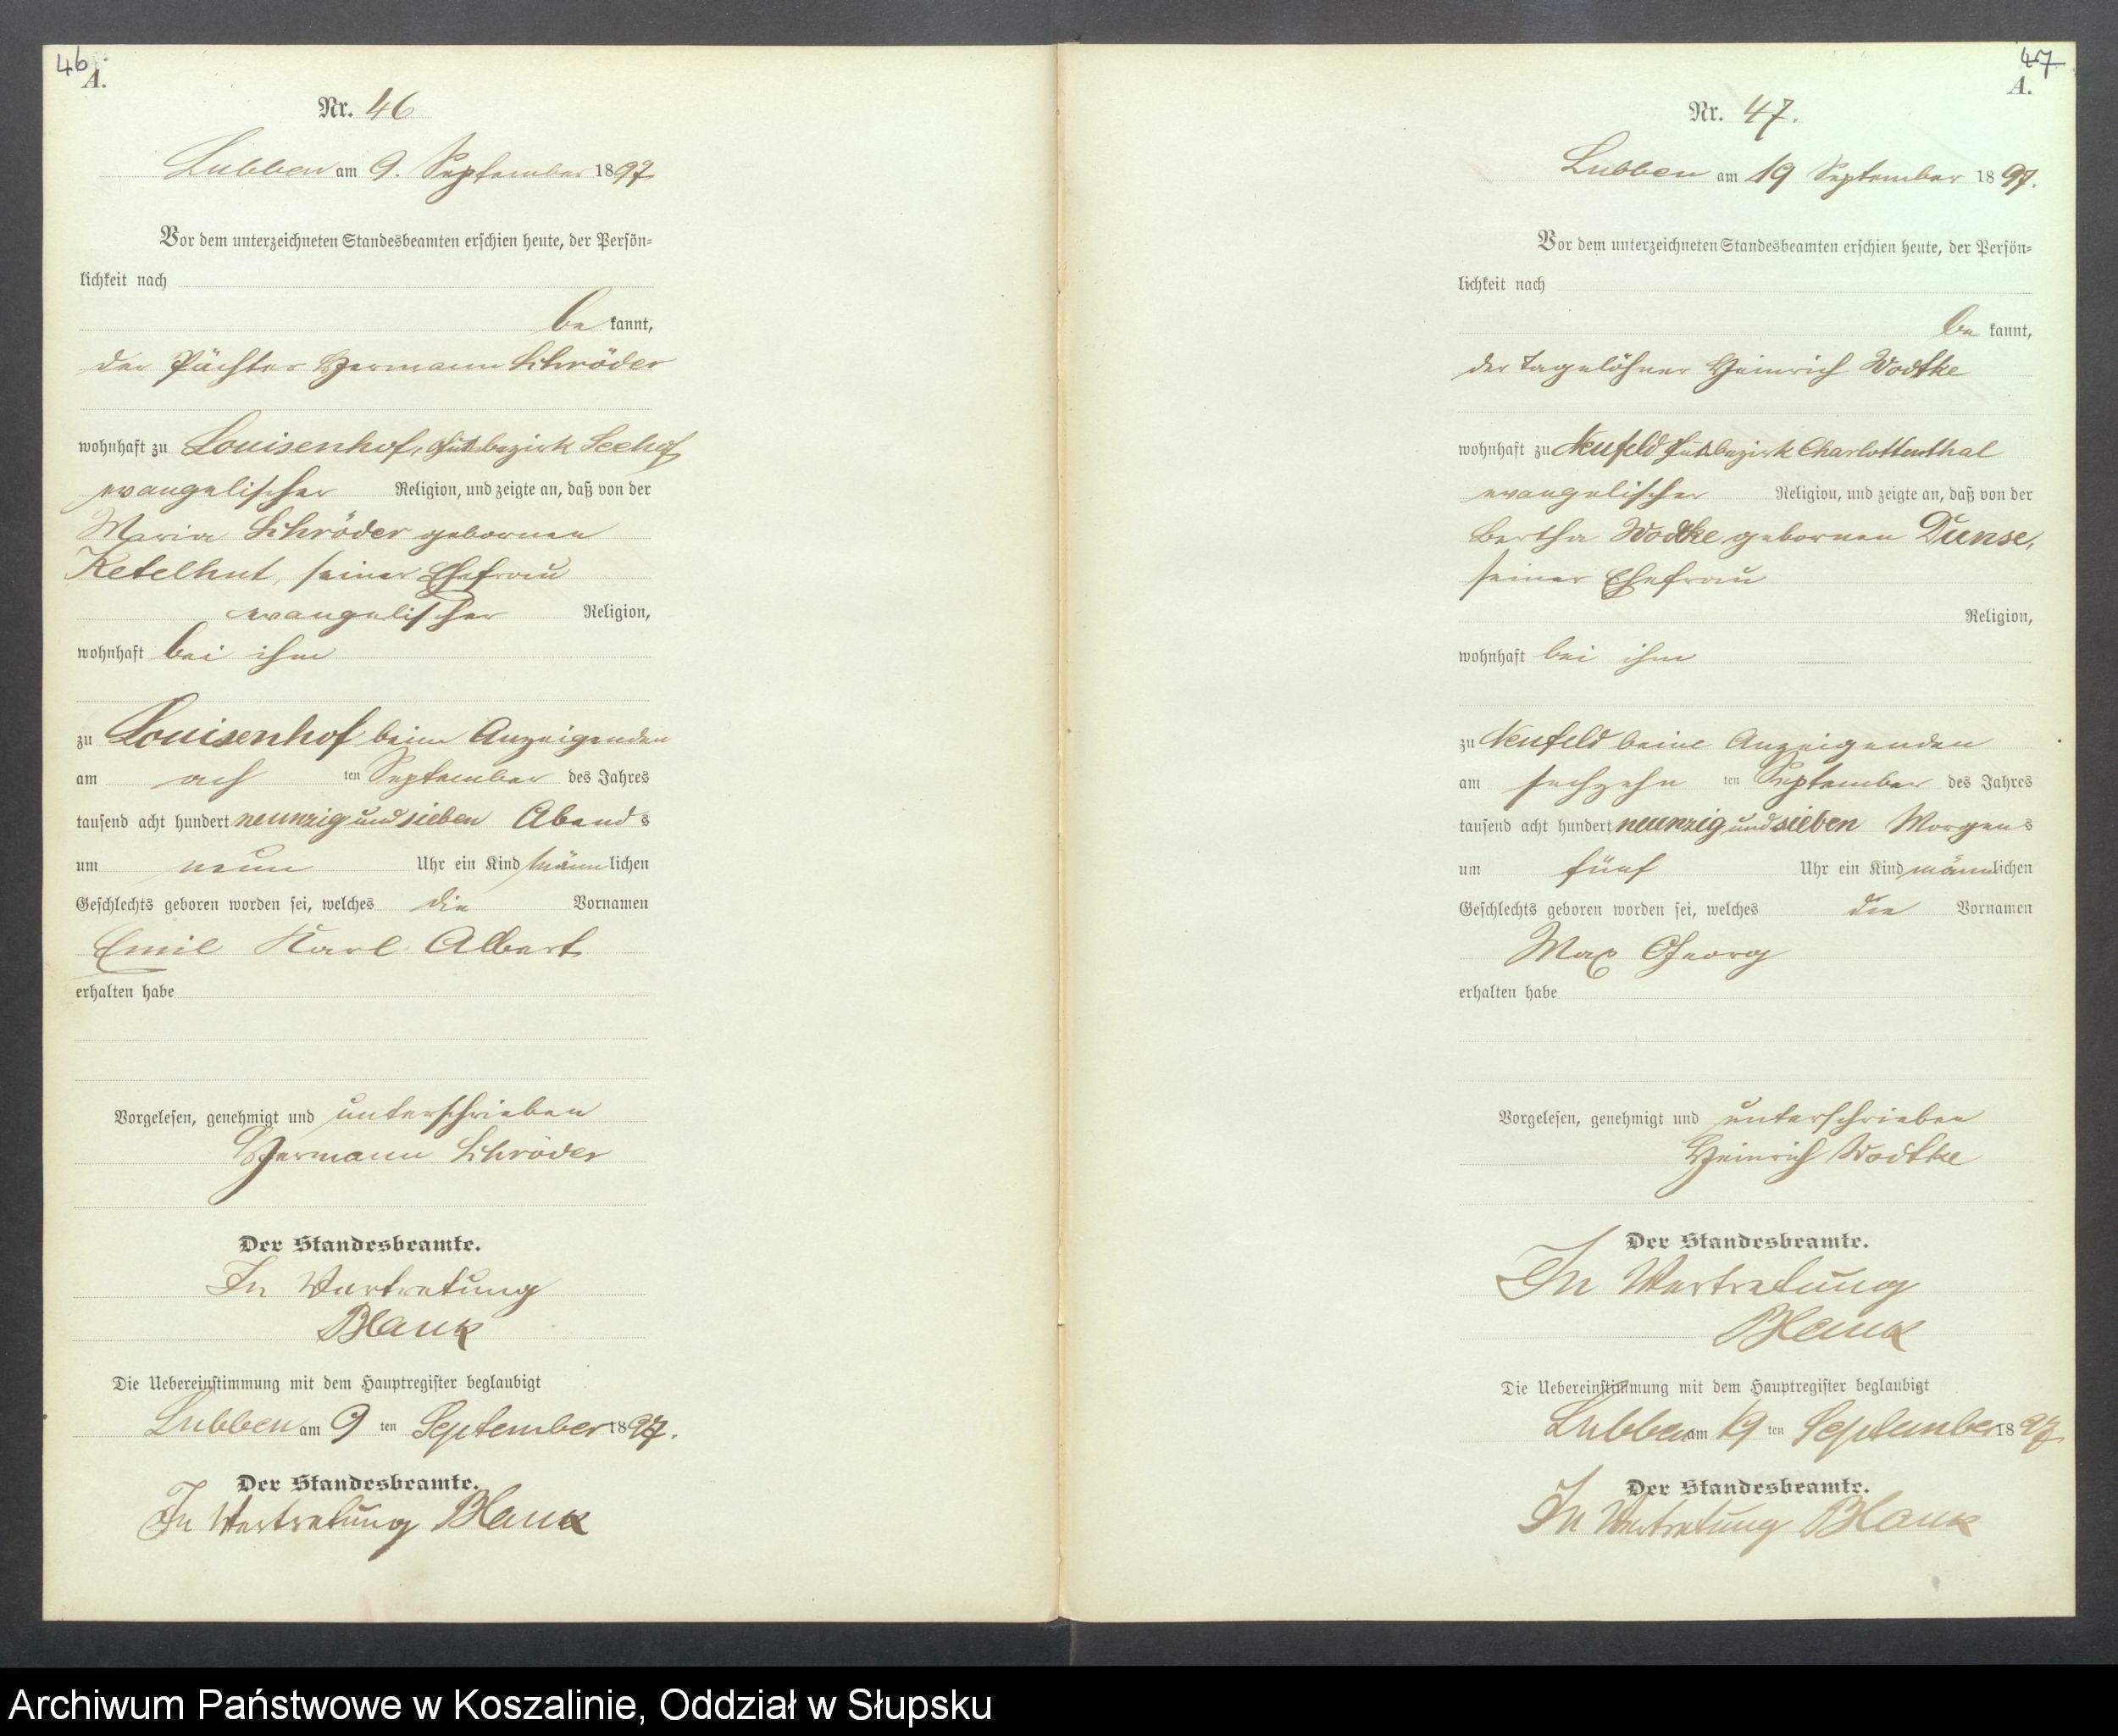 46
A.
Nr. 46
Lubben am 9. September 1897
Vor dem unterzeichneten Standesbeamten erschien heute, der Persön-
lichkeit nach
be kannt,
der Pächter Hermann Schröder
wohnhaft zu Louisenhof, Gutsbezirk Seehof
evangelischer Religion, und zeigte an, daß von der
Maria Schröder gebornen
Ketelhut, seiner Ehefrau
evangelischer Religion,
wohnhaft bei ihm
zu Louisenhof beim Anzeigenden
am ach ten September des Jahres
tausend acht hundert neunzig und sieben Abends
um neun Uhr ein Kind männlichen
Geschlechts geboren worden sei, welches die Vornamen
Emil Karl Albert
erhalten habe
Vorgelesen, genehmigt und unterschrieben
Hermann Schröder
Der Standesbeamte.
In Vertretung
Blank
Die Uebereinstimmung mit dem Hauptregister beglaubigt
Lubben am 9 ten September 1897.
Der Standesbeamte.
In Vertretung Blank
47
A.
Nr. 47.
Lubben am 19 September 1897.
Vor dem unterzeichneten Standesbeamten erschien heute, der Persön-
lichkeit nach
be kannt,
der Tagelöhner Heinrich Wodtke
wohnhaft zu Neufeld Gutsbezirk Charlottenthal
evangelischer Religion, und zeigte an, daß von der
Bertha Wodtke gebornen Dunse,
seiner Ehefrau
Religion,
wohnhaft bei ihm
zu Neufeld beim Anzeigenden
am sechzehn ten September des Jahres
tausend acht hundert neunzig und sieben Morgens
um fünf Uhr ein Kind männlichen
Geschlechts geboren worden sei, welches die Vornamen
Max Georg
erhalten habe
Vorgelesen, genehmigt und unterschrieben
Heinrich Wodtke
Der Standesbeamte.
In Vertretung
Blank
Die Uebereinstimmung mit dem Hauptregister beglaubigt
Lubben am 19 ten September 1897
Der Standesbeamte.
In Vertretung Blank
Archiwum Państwowe w Koszalinie, Oddział w Słupsku